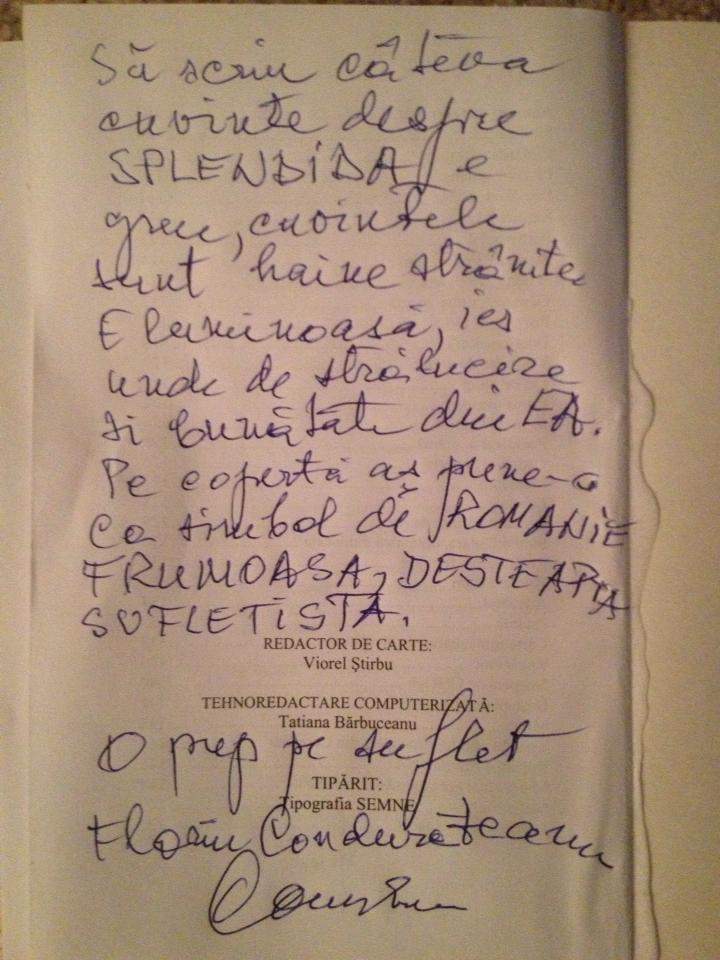 Să scriu câteva
cuvinte despre
SPLENDIDA, e
greu, cuvintele
sunt haine strâmte
E luminoasă, ies
unde de strălucire
si bunătate din EA.
Pe copertă aș pune-o
Ca simbol de ROMANIE
FRUMOASA, DESTEAPTA
SUFLETISTA.
REDACTOR DE CARTE:
Viorel Știrbu
TEHNOREDACTARE COMPUTERIZATĂ:
Tatiana Bărbuceanu
O pup pe suflet
TIPĂRIT:
Tipografia SEMNE
Florin Condurățeanu